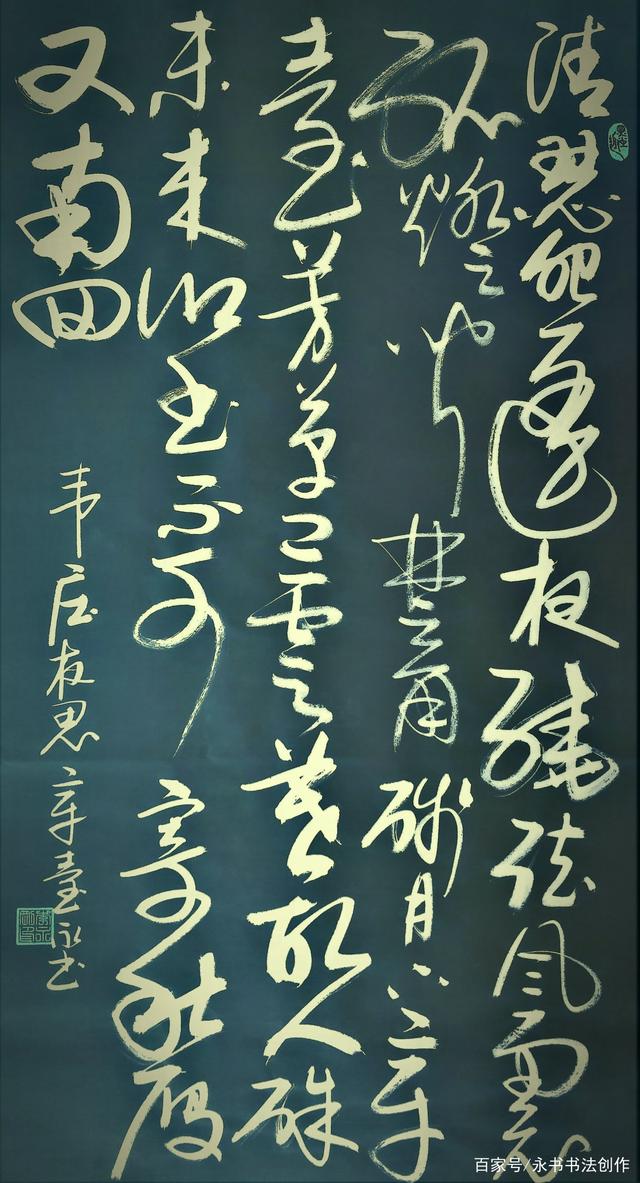 清瑟怨遥夜绕弦风雨哀
孤燈闻楚角残月下章
臺芳草已云暮故人殊
未来乡书不可寄秋雁
又南回
韦庄夜思章臺永书
百家号/永书书法创作